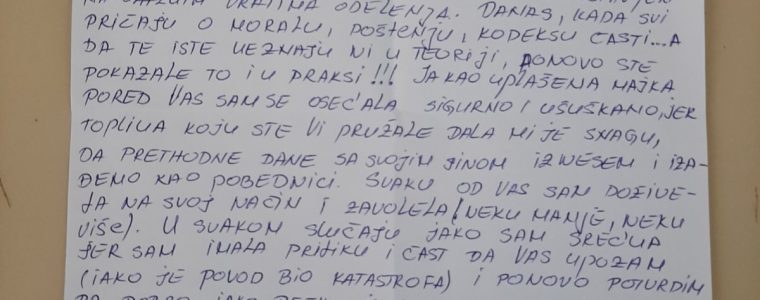 NA VAŠIM VRATIMA ODELENJA. DANAS, KADA SVI
PRIČAJU O MORALU, POŠTENJU, KODEKSU ČASTI...A
DA TE ISTE NE ZNAJU NI U TEORIJI, PONOVO STE
POKAZALE TO I U PRAKSI!!! JA KAO UPLAŠENA MAJKA
PORED VAS SAM SE OSEĆALA SIGURNO I UŠUŠKANO, JER
TOPLINA KOJU STE VI PRUŽALE DALA MI JE SNAGU,
DA PRETHODNE DANE SA SVOJIM SINOM IZNESEM I IZA-
ĐEMO KAO POBEDNICI. SVAKU OD VAS SAM DOŽIVE-
LA NA SVOJ NAČIN I ZAVOLELA (NEKU MANJE, NEKU
VIŠE). U SVAKOM SLUČAJU JAKO SAM SREĆNA
JER SAM IMALA PRILIKU I ČAST DA VAS UPOZNAM
(IAKO JE POVOD BIO KATASTROFA) I PONOVO POTVRDIM